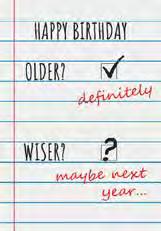 HAPPY BIRTHDAY
OLDER? ✓
definitely
WISER? ?
maybe next
year...